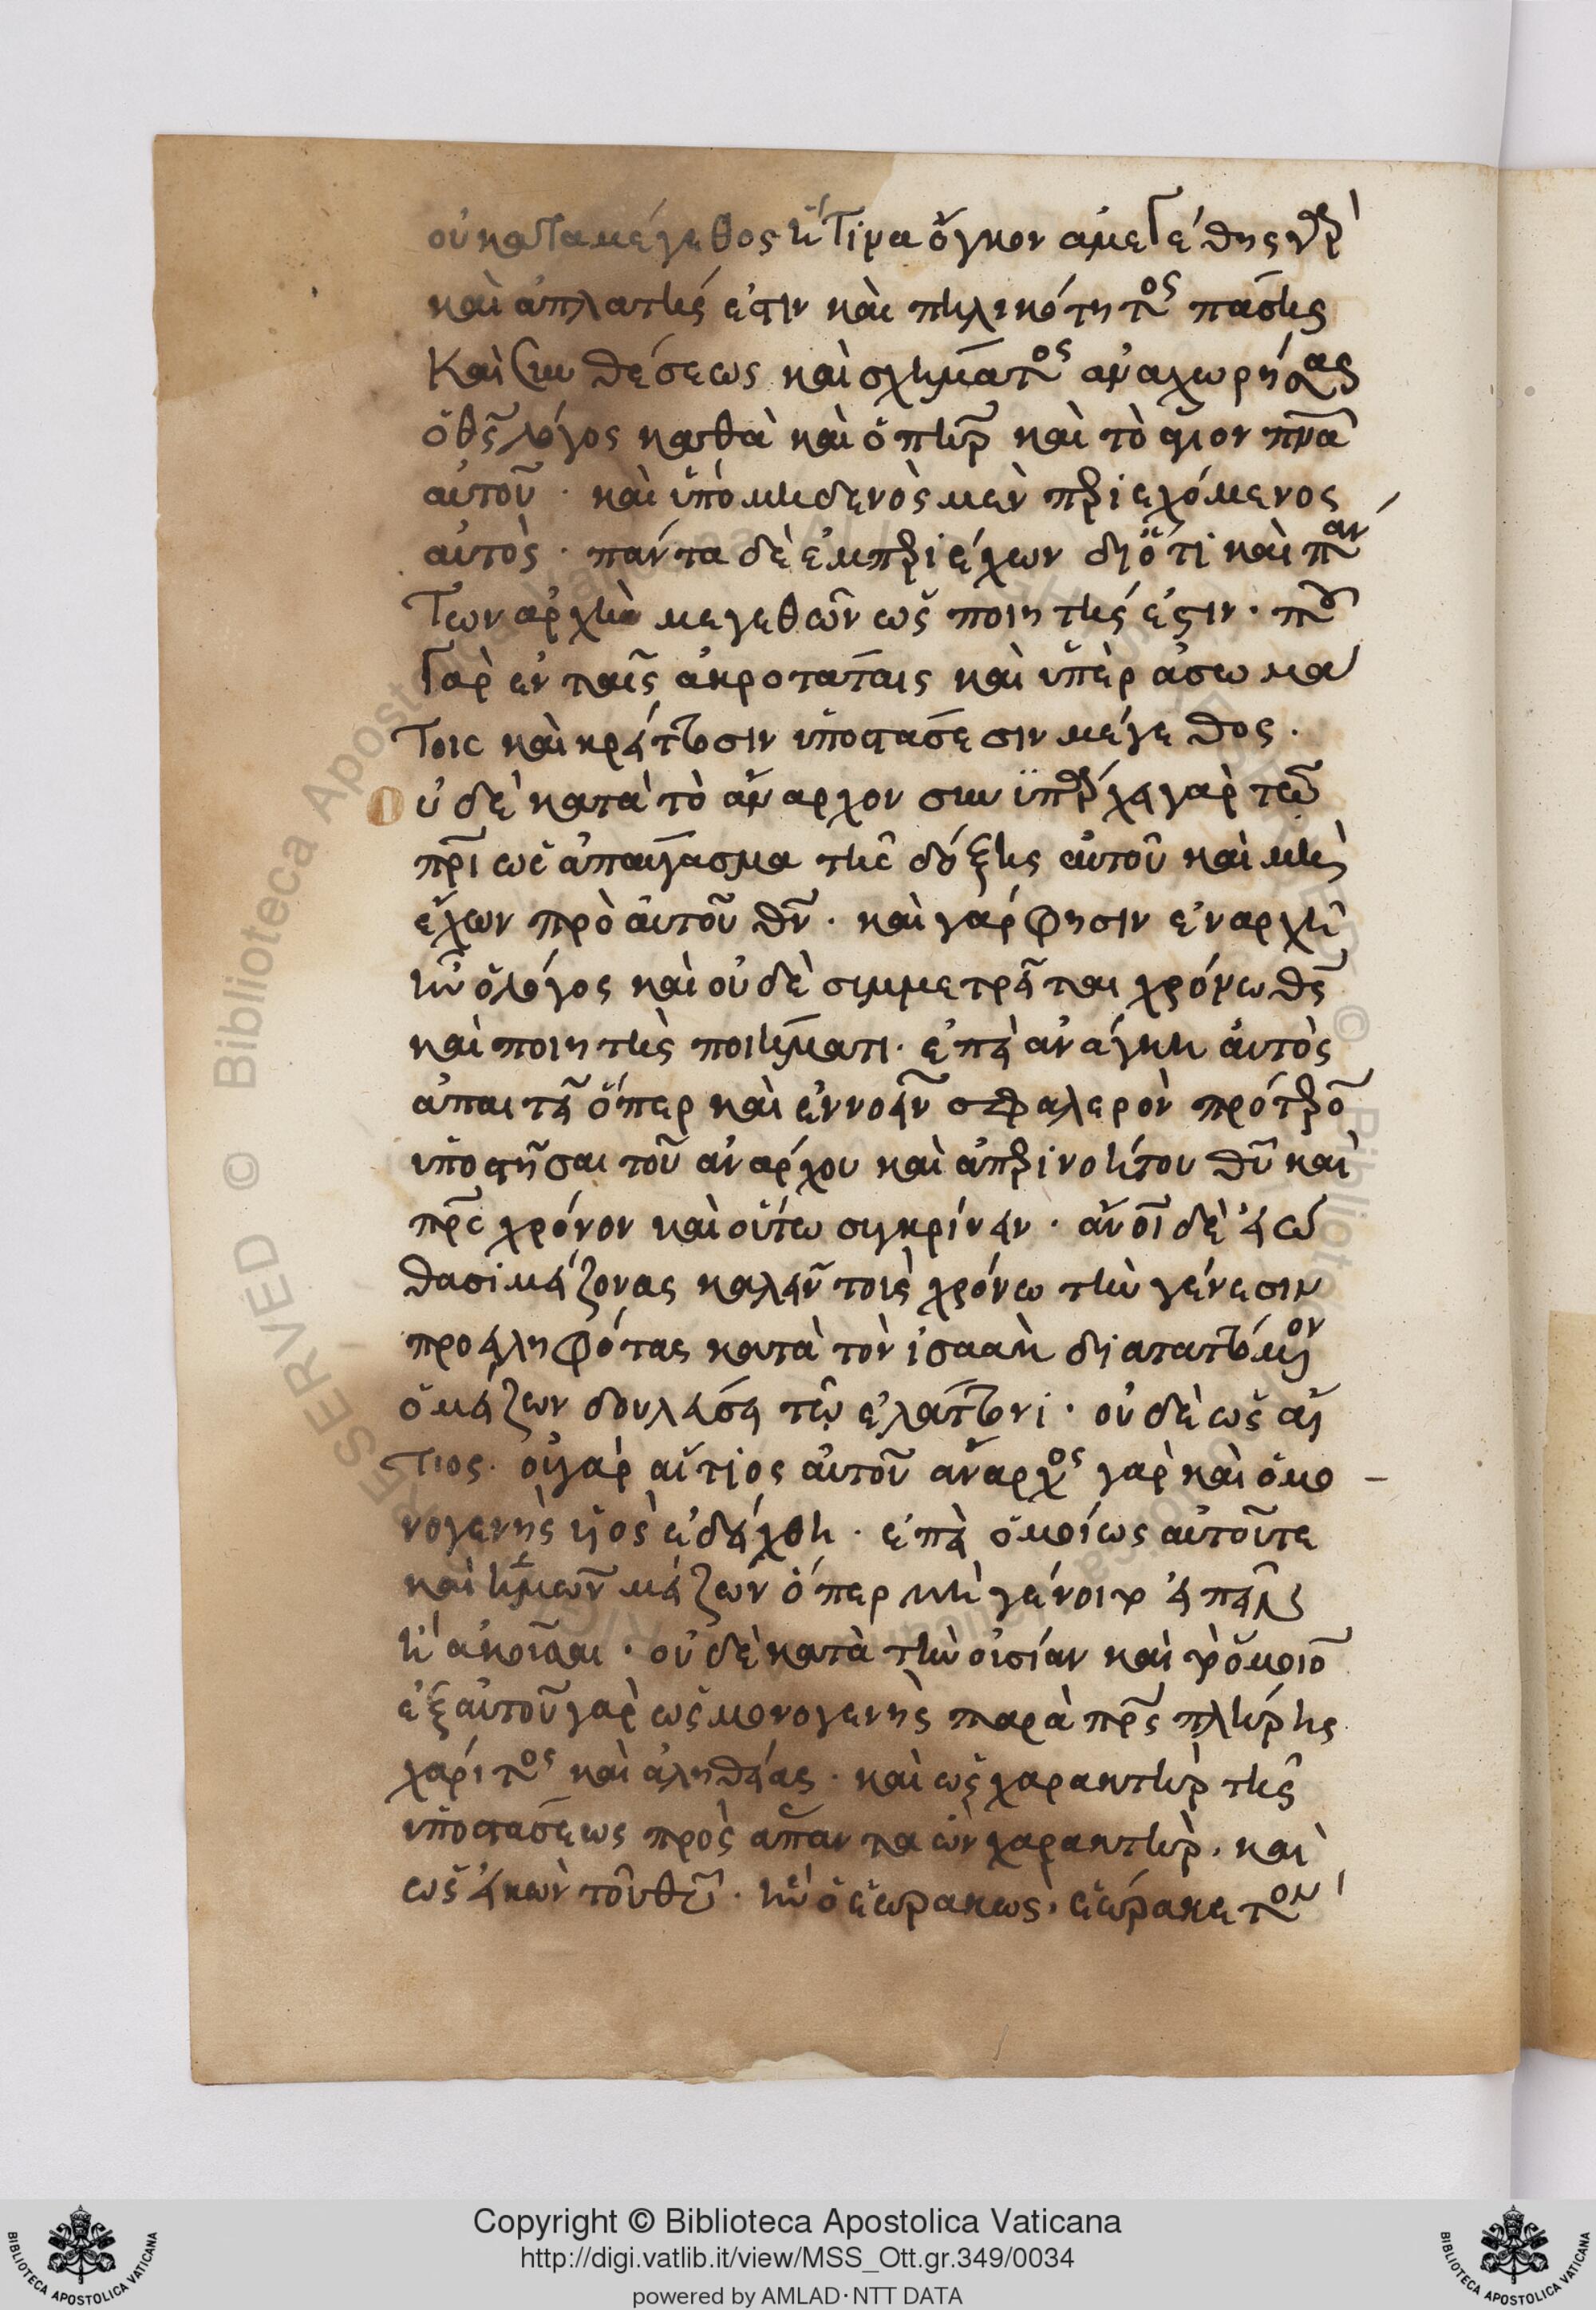 οὐ κατα μέγεθος ἤ τινα ὄγκον ἀμεγέθης γὰρ
καὶ ἀπλατής ἐστιν καὶ πηλικότητος πάσης
καὶ συνθέσεως καὶ σχήματος ἀναχωρήσας
ὁ θς λόγος καθὰ καὶ ὁ πηρ καὶ τὸ ἅγιον πνα
αὐτοῦ · καὶ ὑπὸ μηδενὸς μὲν περιεχόμενος
αὐτὸς · πάντα δὲ ἐμπεριέχων διότι καὶ πάν
των ἀρχὴ μεγεθῶν ὡς ποιητής ἐστιν · ποῦ
γὰρ ἐν ταῖς ἀκροτάταις καὶ ὑπὲρ ἀσωμά
τοις καὶ κρείττοσιν ὑποστάσεσιν μέγεθος ·
Οὐδὲ κατὰ τὸ ἄναρχον συνϋπάρχει γὰρ τῶ
πρι ὡς ἀπαύγασμα τῆς δόξης αὐτοῦ καὶ μὴ
ἔχων πρὸ αὐτοῦ θν · καὶ γάρ φησιν ἐν ἀρχῆ
ἦν ὁ λόγος καὶ οὐδὲ συμμετρεῖται χρόνω θς
καὶ ποιητὴς ποιήματι · ἐπεὶ ἀνάγκη αὐτὸς
ἀπαιτεῖ ὅπερ καὶ ἐννοεῖν σφαλερὸν πρότερον
ὑποστῆσαι τοῦ ἀνάρχου καὶ ἀπερινοήτου θυ καὶ
πρς χρόνον καὶ οὕτω συγκρίνειν · ἄνοι δὲ εἰώ
θασι μείζονας καλεῖν τοὺς χρόνω τὴν γένεσιν
προειληφότας κατὰ τὸν ἰσαὰκ διαταττόμενον
ὁ μείζων δουλεύσει τῶ ἐλάττονι · οὐδὲ ὡς αἴ
τιος · οὐ γὰρ αἴτιος αὐτοῦ ἄναρχος γὰρ καὶ ὁ μο
νογενὴς υἱὸς ἐδείχθη · ἐπεὶ ὁμοίως αὐτοῦ τε
καὶ ἡμῶν μείζων ὅπερ μὴ γένοιτο εἰπεῖν
ἢ ἀκοῦσαι · οὐδὲ κατὰ τὴν οὐσίαν καὶ τὸ ὅμοιον
ἐξ αὐτοῦ γὰρ ὡς μονογενὴς παρὰ πρς πλήρης
χάριτος καὶ ἀληθείας · καὶ ὡς χαρακτὴρ τῆς
ὑποστάσεως πρὸς ἅπαντα ὢν χαρακτὴρ · καὶ
ὡς εἰκὼν τοῦ θυ · ἣν ὁ ἑωρακὼς · ἑώρακε τὸν
Copyright © Biblioteca Apostolica Vaticana
http://digi.vatlib.it/view/MSS_Ott.gr.349/0034
powered by AMLAD·NTT DATA